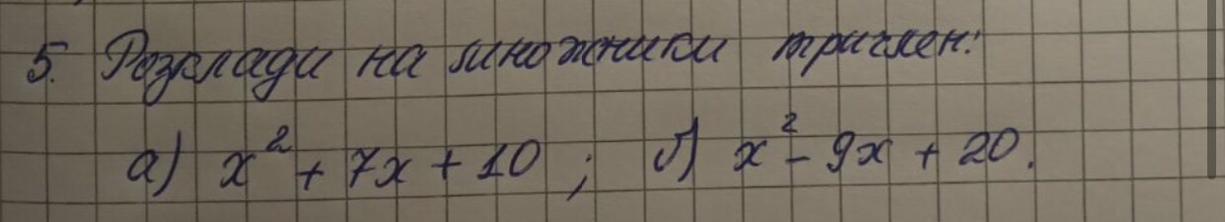 5. Розклади на множники тричлен:
а) x² + 7x + 10 ; б) x² - 9x + 20.